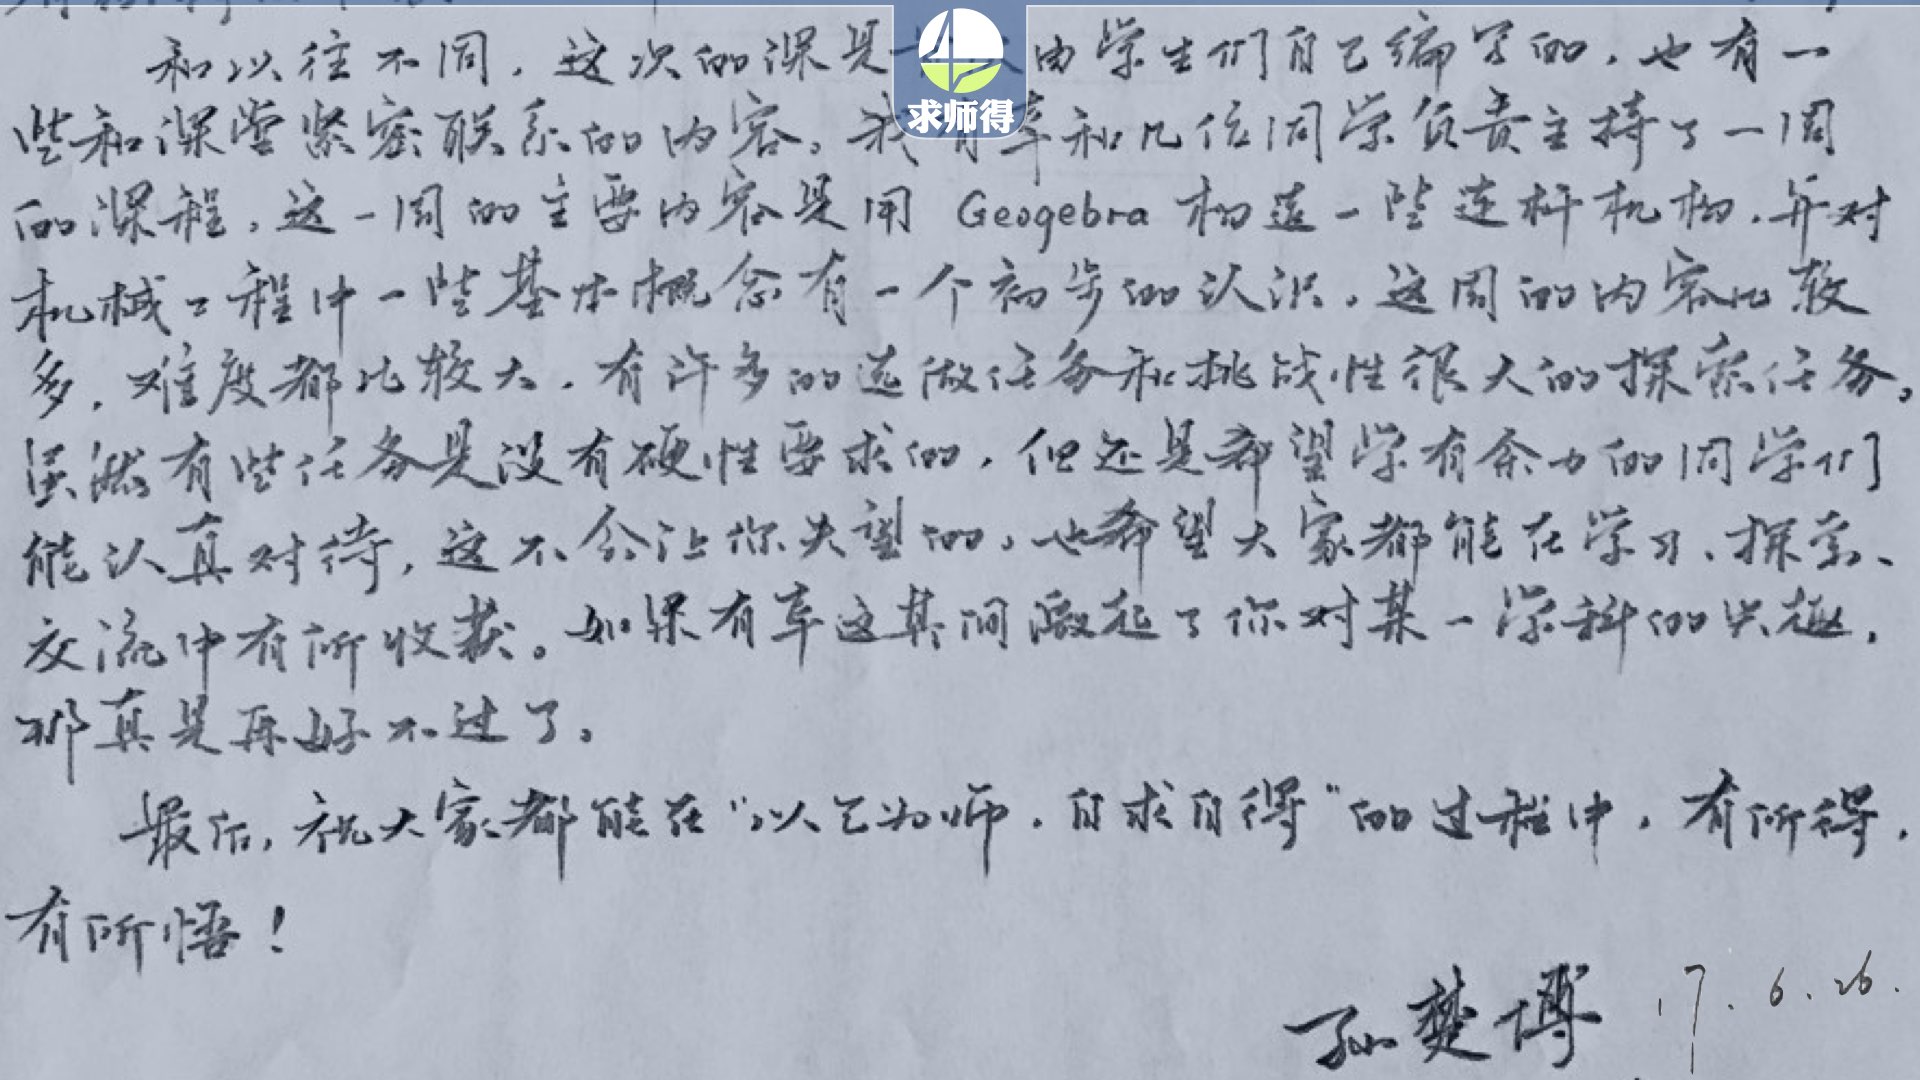 求师得
和以往不同，这次的课是由学生们自己编写的，也有一
些和课堂紧密联系的内容。我有幸和几位同学负责主持了一周
的课程，这一周的主要内容是用 Geogebra 构造一些连杆机构，并对
机械工程中一些基本概念有一个初步的认识。这周的内容比较
多，难度都比较大，有许多的选做任务和挑战性很大的探索任务。
虽然有些任务是没有硬性要求的，但还是希望学有余力的同学们
能认真对待，这不会让你失望的。也希望大家都能在学习、探索、
交流中有所收获。如果有幸这其间激起了你对某一学科的兴趣，
那真是再好不过了。
最后，祝大家都能在“以己为师，自求自得”的过程中，有所得，
有所悟！
孙楚博 17.6.26.